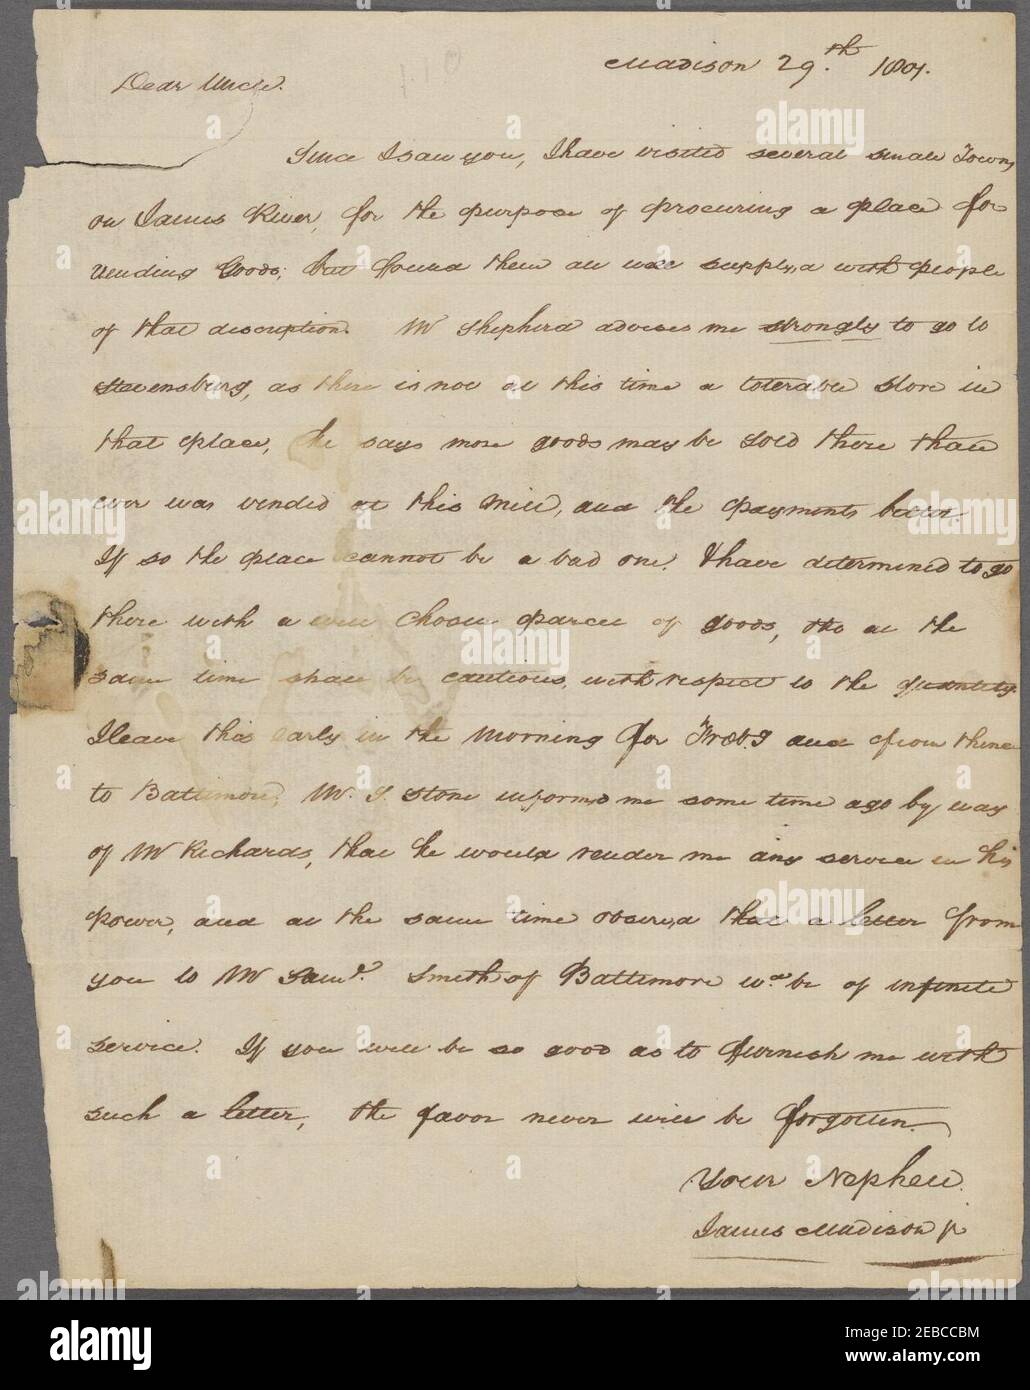 Madison 29.th 1801.
Dear Uncle.
Since I saw you, I have visited several small Towns
on James River, for the purpose of procuring a place for
vending Goods; but found them all well supply,d with people
of that description. Mr Shepherd advises me strongly to go to
Stevensburg, as there is not at this time a tolerable store in
that place, he says more goods may be sold there than
ever was vended at this Mill, and the payments better.
If so the place cannot be a bad one. I have determined to go
there with a well chosen parcel of goods, tho at the
same time shall be cautious, with respect to the quantity.
I leave this early in the morning for Fredbg and from thence
to Baltimore, Mr. S. Stone inform,d me some time ago by way
of Mr Richards, that he would render me any service in his
power, and at the same time observ,d that a letter from
you to Mr Saml. Smith of Baltimore wd. be of infinite
service. If you will be so good as to furnish me with
such a letter, the favor never will be forgotten.
Your Nephew.
James Madison jr
alamy
Image ID: 2EBCCBM
www.alamy.com